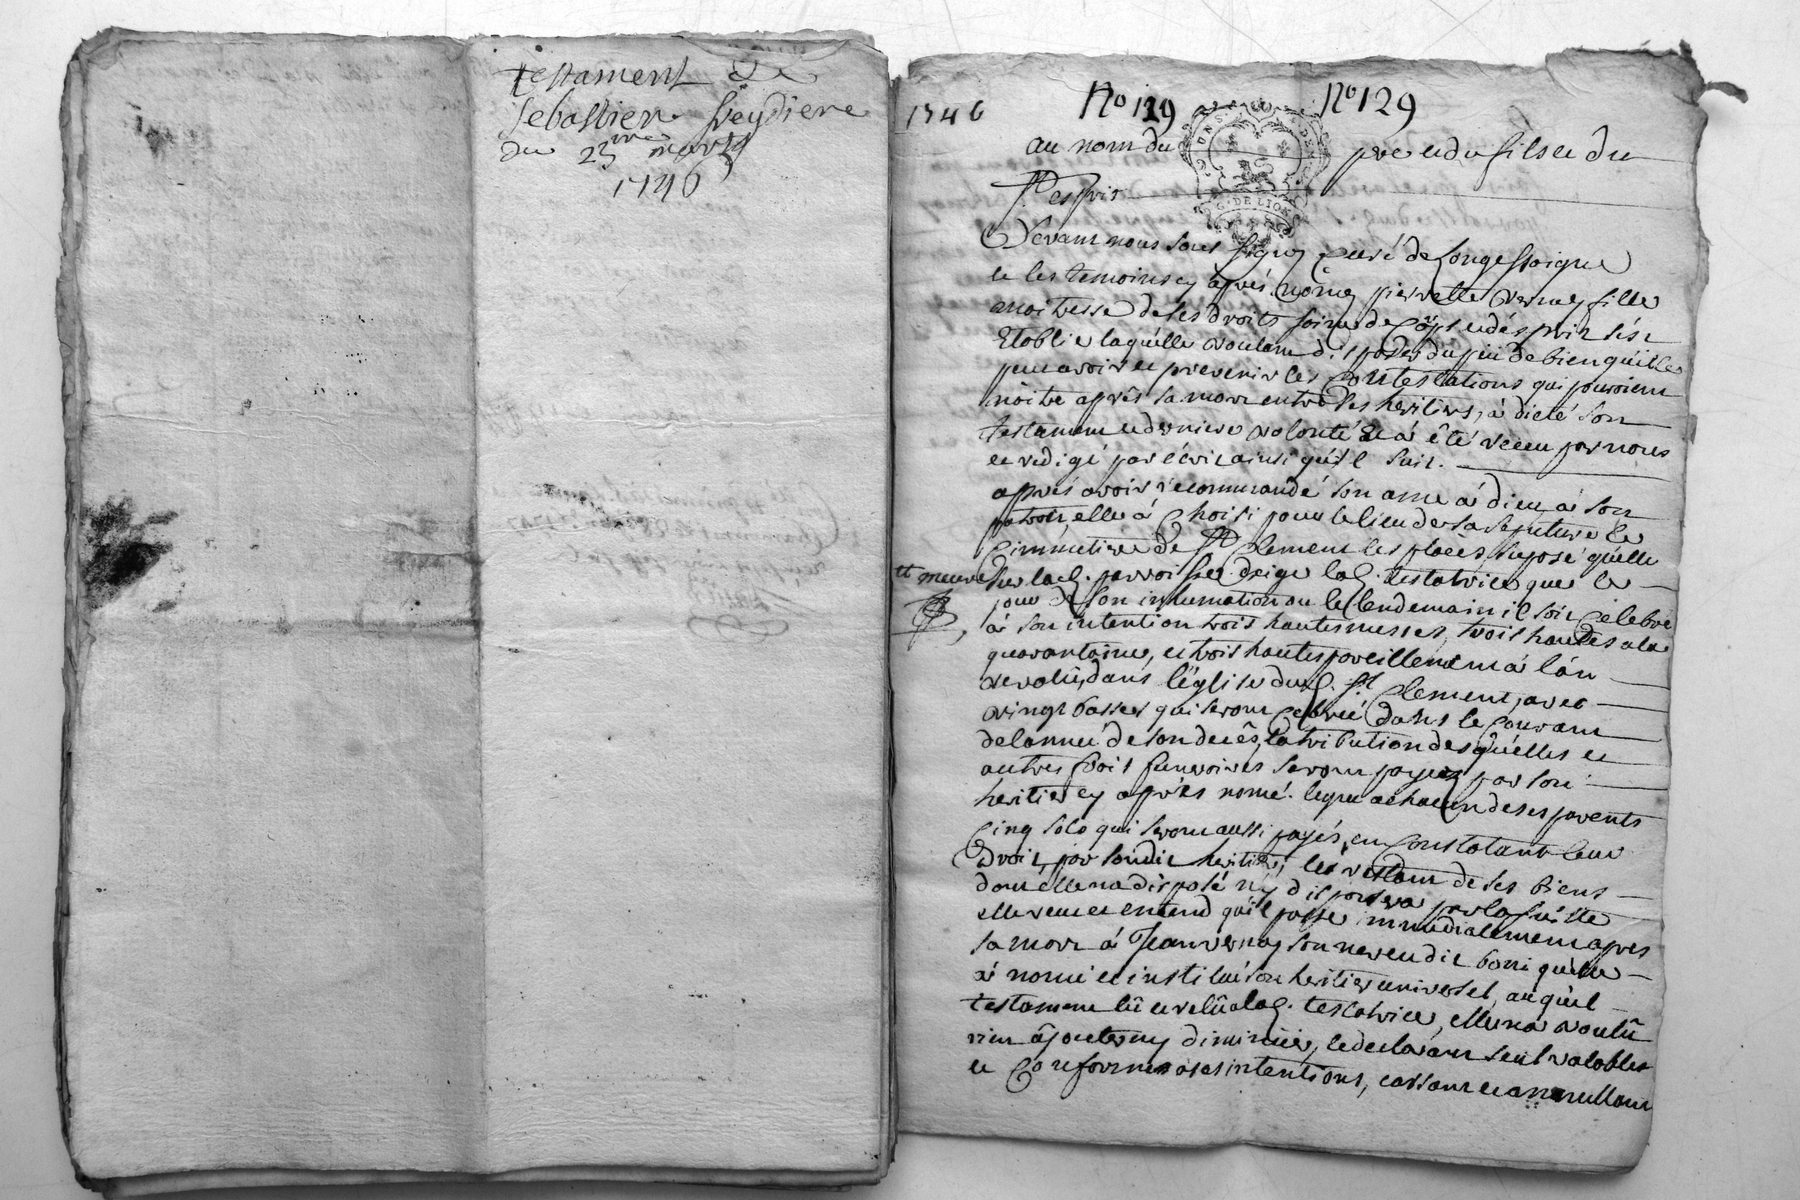 testament de
Sebastien freydiere
du 23me mars
1746
1746
No 129
No 129
G. DE LION
au nom du pere et du fils et du
St esprit
Devant nous sous signé Curé de Longessaigne
et les temoins cy aprés nômé pierrette verney fille
maitresse de ses droits saine de Corps et désprit
Etablie laquélle voulant disposer du peü de bien quélle
peut avoir et prevenir les Contestations qui pouroient
nâitre aprês sa mort entre ses heritiers, à dicté son
testament et derniere volonté et à êté receu par nous
et redigé par écrit ainsi qu'il suit.
aprés avoir recommandé son ame à dieu, à son
patron elle à Choisi pour le lieu de sa sepulture le
Cimmetiere de St Clement les places suposé quélle
et meure sur lad. parroisse. exige lad. testatrice que le
jour de son inhumation ou le lendemain il soit Celebré
à son intention trois hautes messes, trois hautes a la
quarantaine, et trois hautes pareillement à lán
revolû, dans l'église dud. St Clement, avec
vingt basses qui seront Celebreé dans le Courant
de lanneé de son decês, la tribution desquélles et
autres frais funeraires seront payez par son
heritier cy aprês nomé. legue a chacun de ses parents
Cinq sols qui seront aussi payés, en Constatant leur
Droit, par sondit heritier, les restant de ses biens
dont elle na disposé ny disposera par la suitte
elle veut et entend qu'il passe immediatement apres
sa mort à Jean verney son neveu dit bony quélle
à nomé et institué son heritier universel, auquel
testament lû et relû a lad. testatrice, elle na voulû
rien âjouter ny diminüer, le declarant seul valable
et Conforme a ses intentions, cassant et annullant